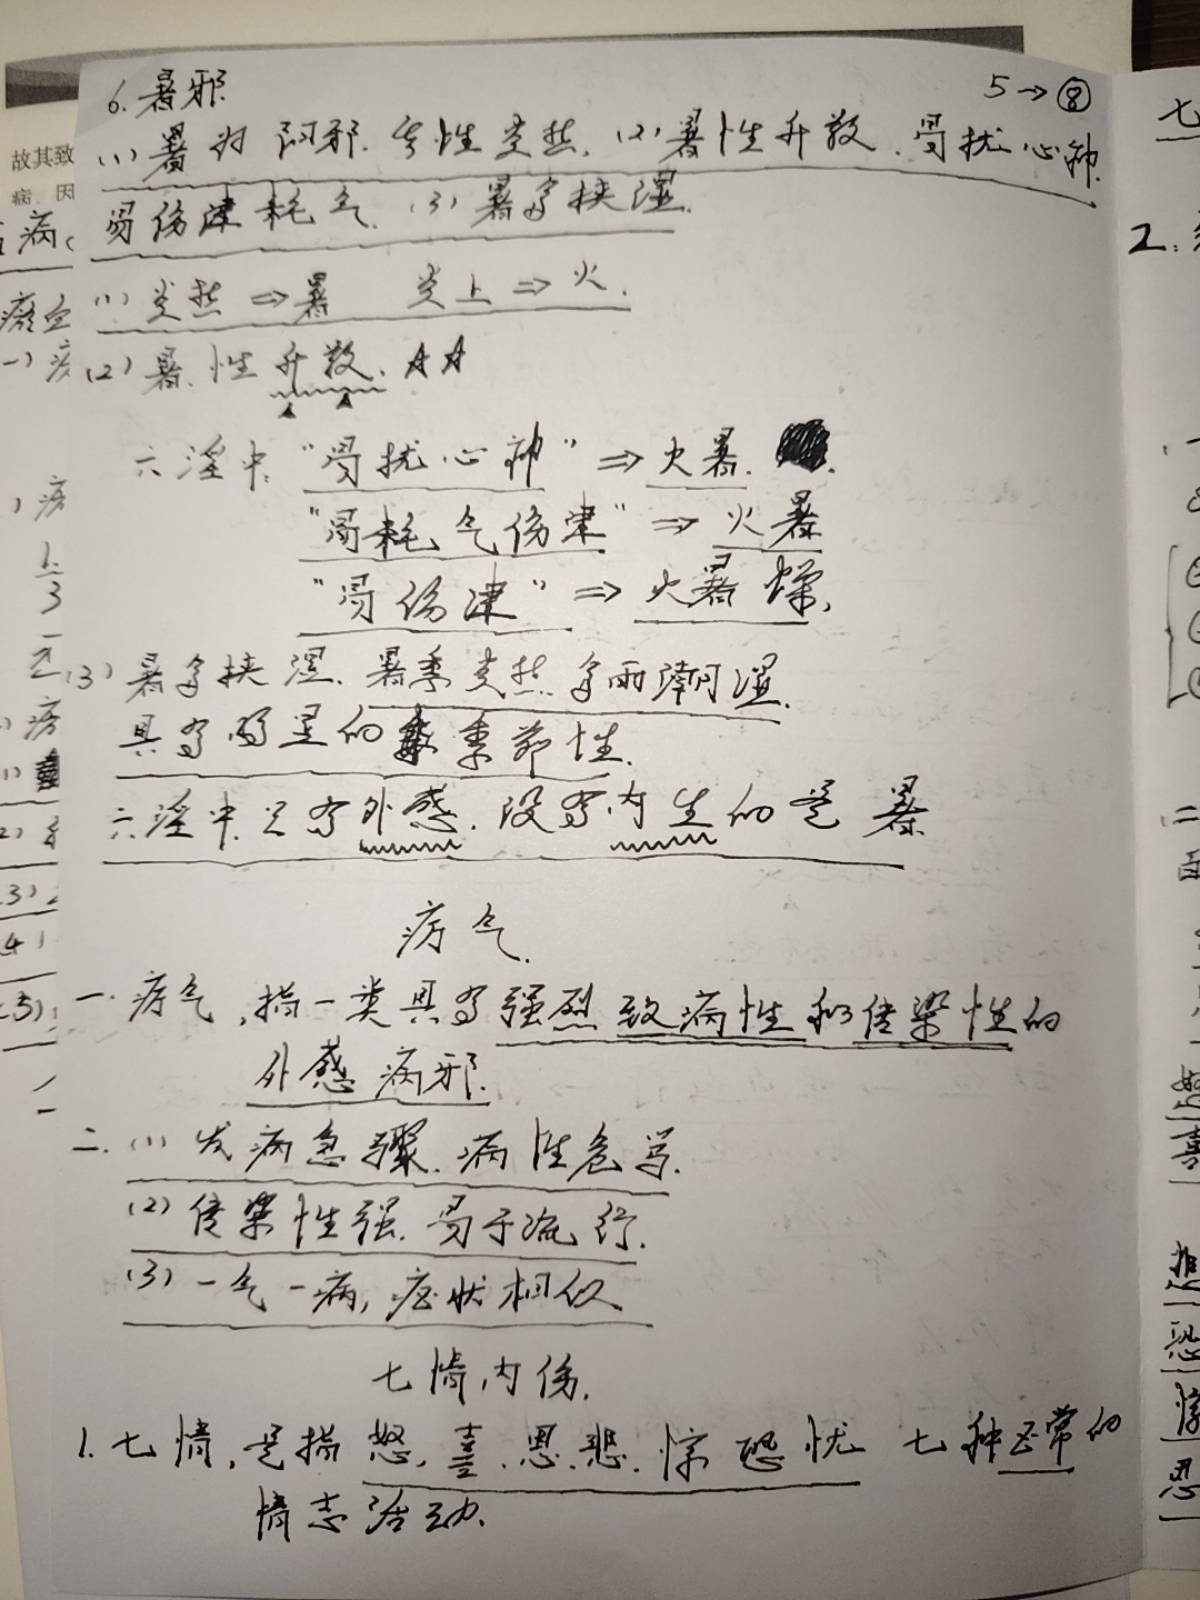 5→⑧
6.暑邪
(1)暑为阳邪.其性炎热.(2)暑性升散.易扰心神.
易伤津耗气.(3)暑多挟湿.
(1)炎热⇒暑 炎上⇒火.
(2)暑.性升散.AA
六淫中."易扰心神"⇒火暑.
"易耗气伤津"⇒火暑
"易伤津"⇒火暑燥,
(3)暑多挟湿.暑季炎热多雨潮湿.
具有明显的季节性.
六淫中.只有外感.没有内生的是暑
疠气.
一.疠气,指一类具有强烈致病性和传染性的
外感病邪.
二.(1)发病急骤.病性危笃.
(2)传染性强.易于流行.
(3)一气一病,症状相似
七情内伤.
1.七情,是指怒.喜.思.悲.惊恐忧 七种正常的
情志活动.
故其致
病.因